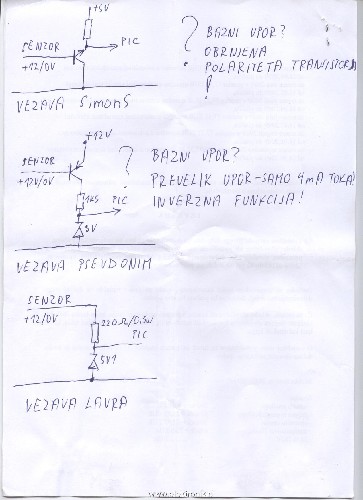 +5V
? BAZNI UPOR?
SENZOR
PIC
OBRNJENA
+12/0V
POLARITETA TRANZISTORJA
!
VEZAVA SIMONS
+12V
SENZOR
? BAZNI UPOR?
+12V/0V
PREVELIK UPOR-SAMO 4mA TOKA!
1K5
PIC
INVERZNA FUNKCIJA!
5V
VEZAVA PSEVDONIM
SENZOR
+12/0V
220Ω/0,5W
PIC
5V1
VEZAVA LAVRA